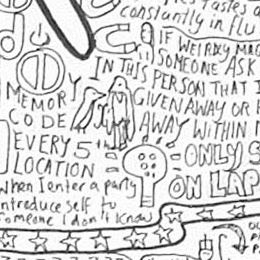 tastes a
constantly in flu
IF WEIRDLY MAD
SOMEONE ASK
IN THIS PERSON THAT I
GIVEN AWAY OR
AWAY WITHIN
MEMORY
CODE
EVERY 5
LOCATION
ONLY S
ON LAP
When I enter a party
introduce self to
someone I don't know